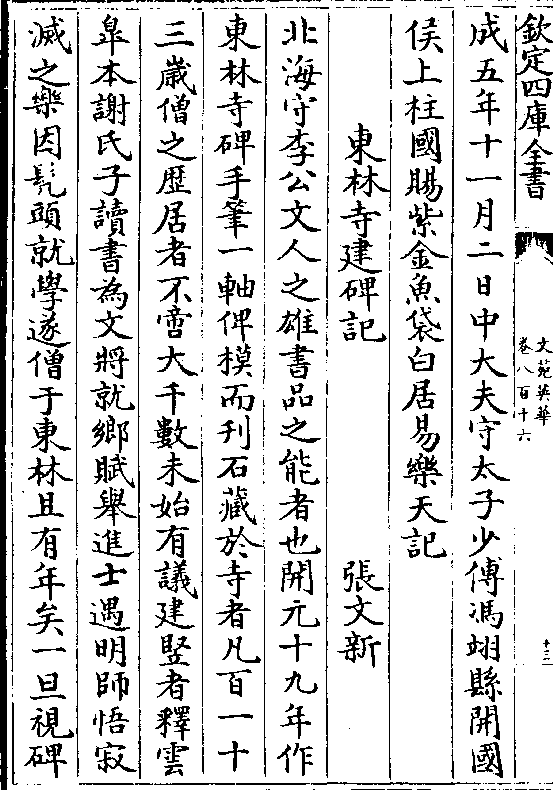 欽定四庫全書
文苑英華
卷八百十六
十三
成五年十一月二日中大夫守太子少傅馮翊縣開國
侯上柱國賜紫金魚袋白居易樂天記
東林寺建碑記 張文新
北海守李公文人之雄書品之能者也開元十九年作
東林寺碑手筆一軸俾模而刊石藏於寺者凡百一十
三嵗僧之歴居者不啻大千數未始有議建竪者釋雲
臯本謝氏子讀書為文將就鄉賦舉進士遇明師悟寂
滅之樂因髠頭就學遂僧于東林且有年矣一旦視碑